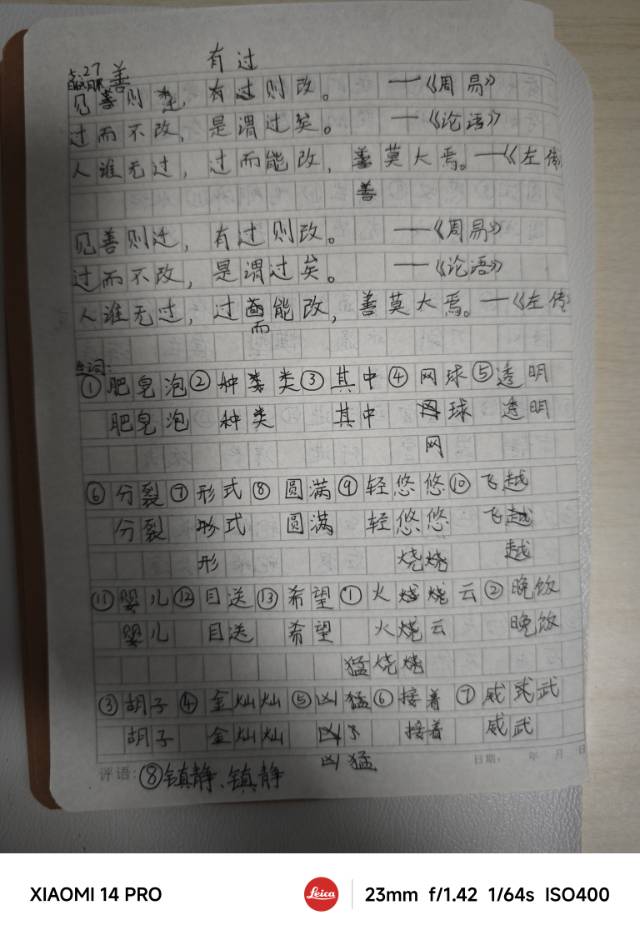 善 有过
见善则迁，有过则改。 ——《周易》
过而不改，是谓过矣。 ——《论语》
人谁无过，过而能改，善莫大焉。——《左传
善
见善则迁，有过则改。 ——《周易》
过而不改，是谓过矣。 ——《论语》
人谁无过，过能改，善莫大焉。——《左传
而
生词：
①肥皂泡②种粪类③其中④网球⑤透明
肥皂泡 种类 其中 网球 透明
网
⑥分裂⑦形式⑧圆满⑨轻悠悠⑩飞越
分裂 形式 圆满 轻悠悠 飞越
形 烧烧 越
⑪婴儿⑫目送⑬希望①火烧烧云②晚饭
婴儿 目送 希望 火烧云 晚饭
猛烧烧
③胡子④金灿灿⑤凶猛⑥接着⑦威武武
胡子 金灿灿 凶 接着 威武
凶猛
评语：⑧镇静、镇静
日期： 年 月 日
XIAOMI 14 PRO Leica 23mm f/1.42 1/64s ISO400